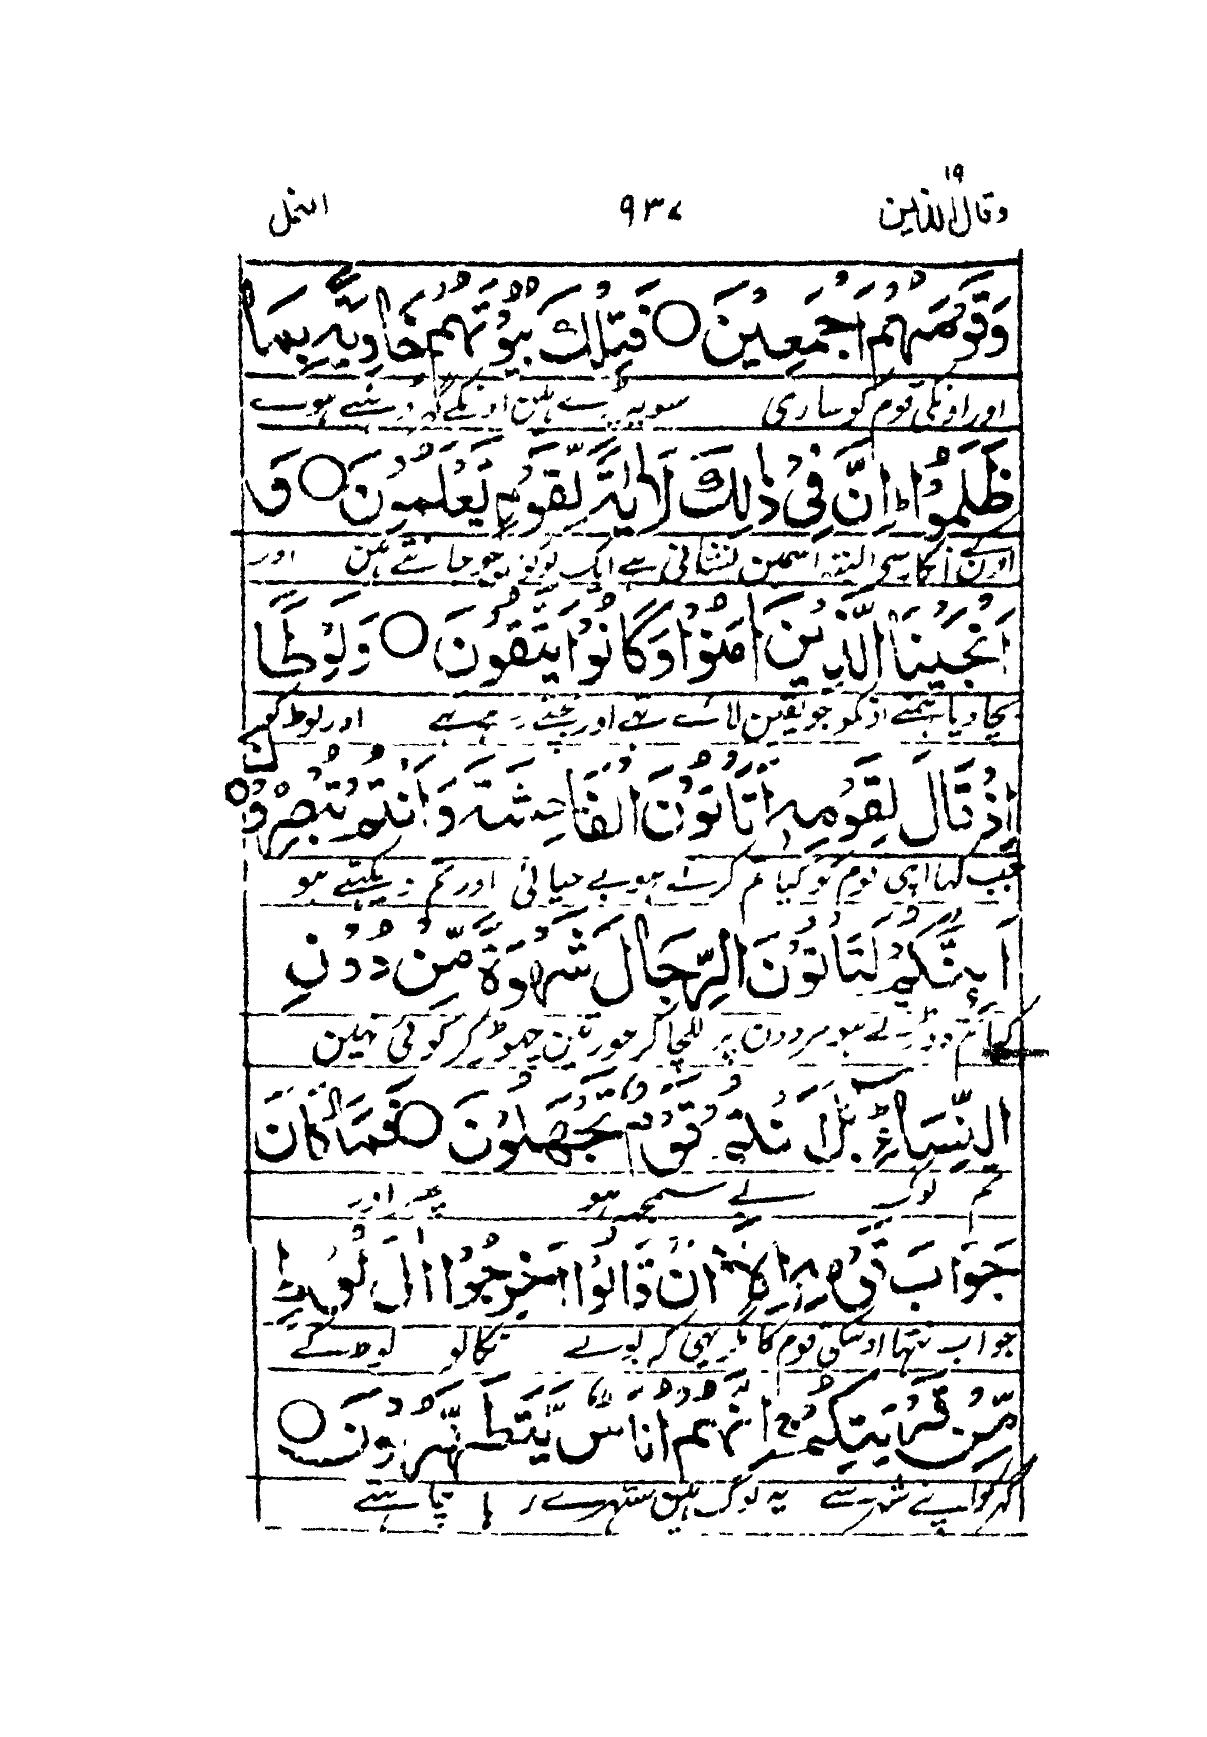 ١٩
وقال الذین ٩٣٧ النمل
وَقَوْمَهُمْ اَجْمَعِیْنَ ○ فَتِلْكَ بُیُوْتُهُمْ خَاوِیَةًۢ بِمَا
اور اونکی قوم کو ساری سو یہ پڑے ہین اونکے گھر ڈہے ہوے
ظَلَمُوْا ؕ اِنَّ فِیْ ذٰلِكَ لَاٰیَةً لِّقَوْمٍ یَّعْلَمُوْنَ ○ وَ
البتہ اسمین نشانی ہے ایک لوگونکو جو جانتے ہین اور
اَنْجَیْنَا الَّذِیْنَ اٰمَنُوْا وَكَانُوْا یَتَّقُوْنَ ○ وَلُوْطًا
بچا دیا ہمنے اونکو جو یقین لائے تھے اور بچتے رہے تھے اور لوط کو
اِذْ قَالَ لِقَوْمِهٖۤ اَتَاْتُوْنَ الْفَاحِشَةَ وَ اَنْتُمْ تُبْصِرُوْنَ ○
جب کہا اپنی قوم کو کیا تم کرتے ہو بے حیائی اور تم دیکھتے ہو
اَىِٕنَّكُمْ لَتَاْتُوْنَ الرِّجَالَ شَهْوَةً مِّنْ دُوْنِ
کیا تم دوڑتے ہو مردون پر للچا کر عورتین چھوڑ کر کوئی نہین
النِّسَآءِ ؕ بَلْ اَنْتُمْ قَوْمٌ تَجْهَلُوْنَ ○ فَمَا كَانَ
تم لوگ بے سمجھ ہو پھر اور
جَوَابَ قَوْمِهٖۤ اِلَّاۤ اَنْ قَالُوْۤا اَخْرِجُوْۤا اٰلَ لُوْطٍ
جواب نتھا اوسکی قوم کا مگر یہی کہ بولے نکالو لوط کے
مِّنْ قَرْیَتِكُمْ ۚ اِنَّهُمْ اُنَاسٌ یَّتَطَهَّرُوْنَ ○
گھر کو اپنے شہر سے یہ لوگ ہین ستھرے رہا چاہتے